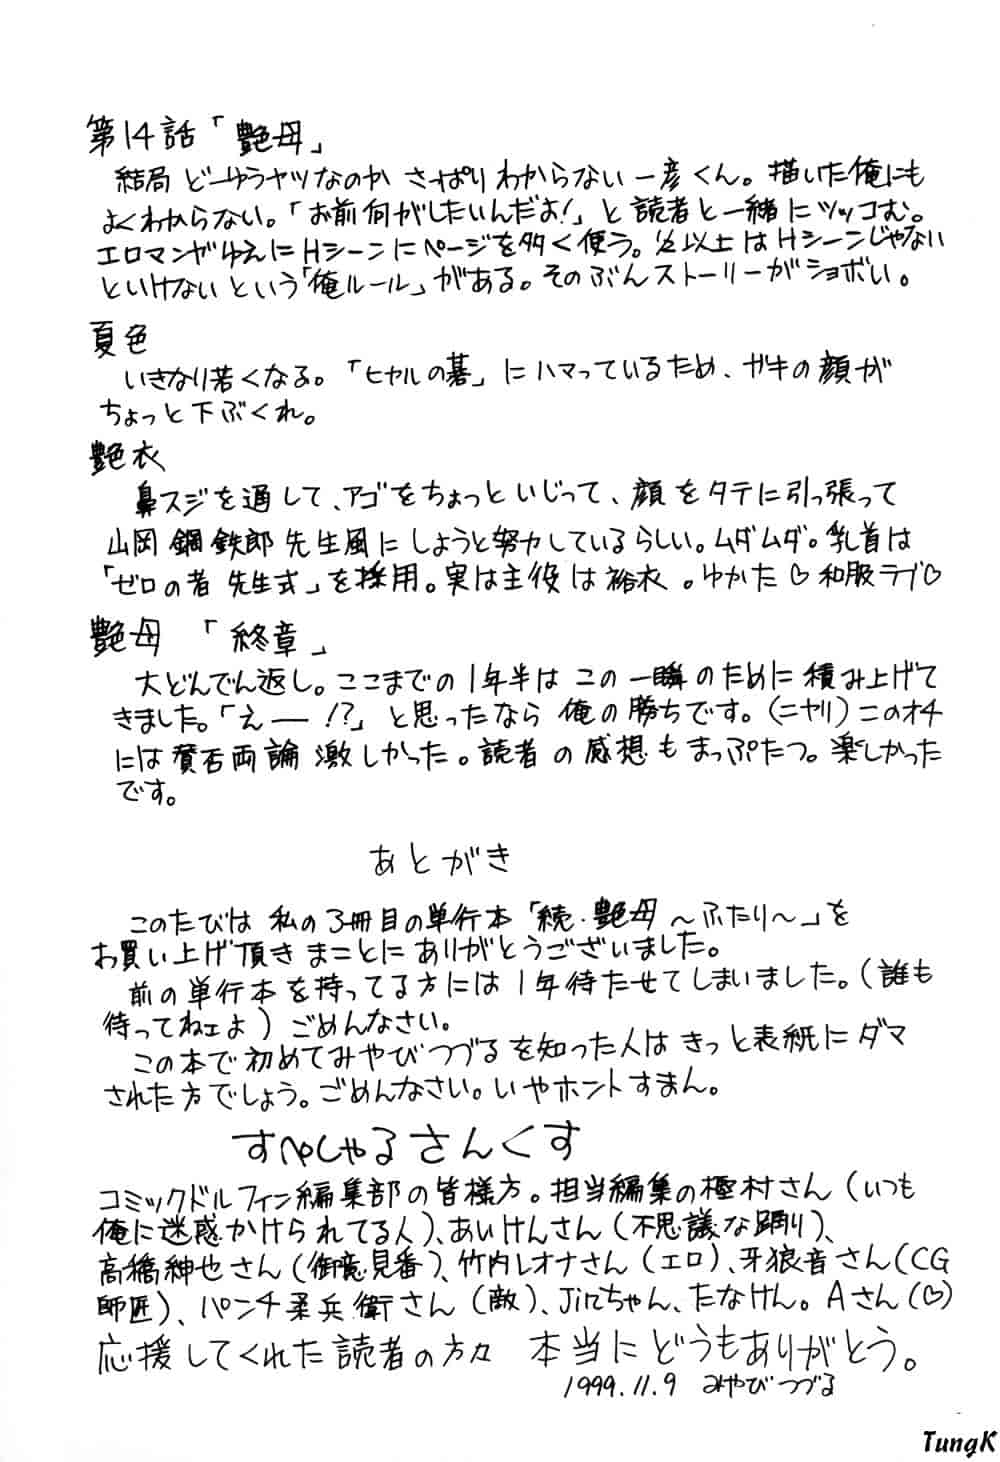 第14話「艶母」
結局どーゆうヤツなのかさっぱりわからない一彦くん。描いた俺にも
よくわからない。「お前何がしたいんだよ!」と読者と一緒にツッコむ。
エロマンガゆえにHシーンにページを多く使う。½以上はHシーンじゃない
といけないという「俺ルール」がある。そのぶんストーリーがショボい。
夏色
いきなり若くなる。「ヒカルの碁」にハマっているため、ガキの顔が
ちょっと下ぶくれ。
艶衣
鼻スジを通して、アゴをちょっといじって、顔をタテに引っ張って
山岡鋼鉄郎先生風にしようと努力しているらしい。ムダムダ。乳首は
「ゼロの者先生式」を採用。実は主役は裕衣。ゆかた♡和服ラブ♡
艶母 「終章」
大どんでん返し。ここまでの1年半はこの一瞬のために積み上げて
きました。「えー!?」と思ったなら俺の勝ちです。(ニヤリ)このオチ
には賛否両論激しかった。読者の感想もまっぷたつ。楽しかった
です。
あとがき
このたびは私の3冊目の単行本「続・艶母〜ふたり〜」を
お買い上げ頂きまことにありがとうございました。
前の単行本を持ってる方には1年待たせてしまいました。(誰も
待ってねェよ)ごめんなさい。
この本で初めてみやびつづるを知った人はきっと表紙にダマ
された方でしょう。ごめんなさい。いやホントすまん。
すぺしゃるさんくす
コミックドルフィン編集部の皆様方。担当編集の極村さん(いつも
俺に迷惑かけられてる人)、あいけんさん(不思議な踊り)、
高橋紳也さん(御意見番)、竹内レオナさん(エロ)、牙狼音さん(CG
師匠)、パンチ柔兵衛さん(敵)、Jinちゃん、たなけん。Aさん(♡)
応援してくれた読者の方々 本当にどうもありがとう。
1999.11.9 みやびつづる
TungK